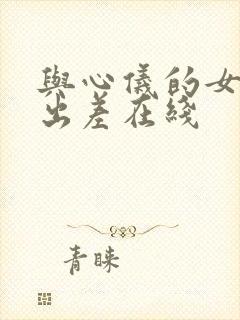 與心儀的女
出差在綫
青睞